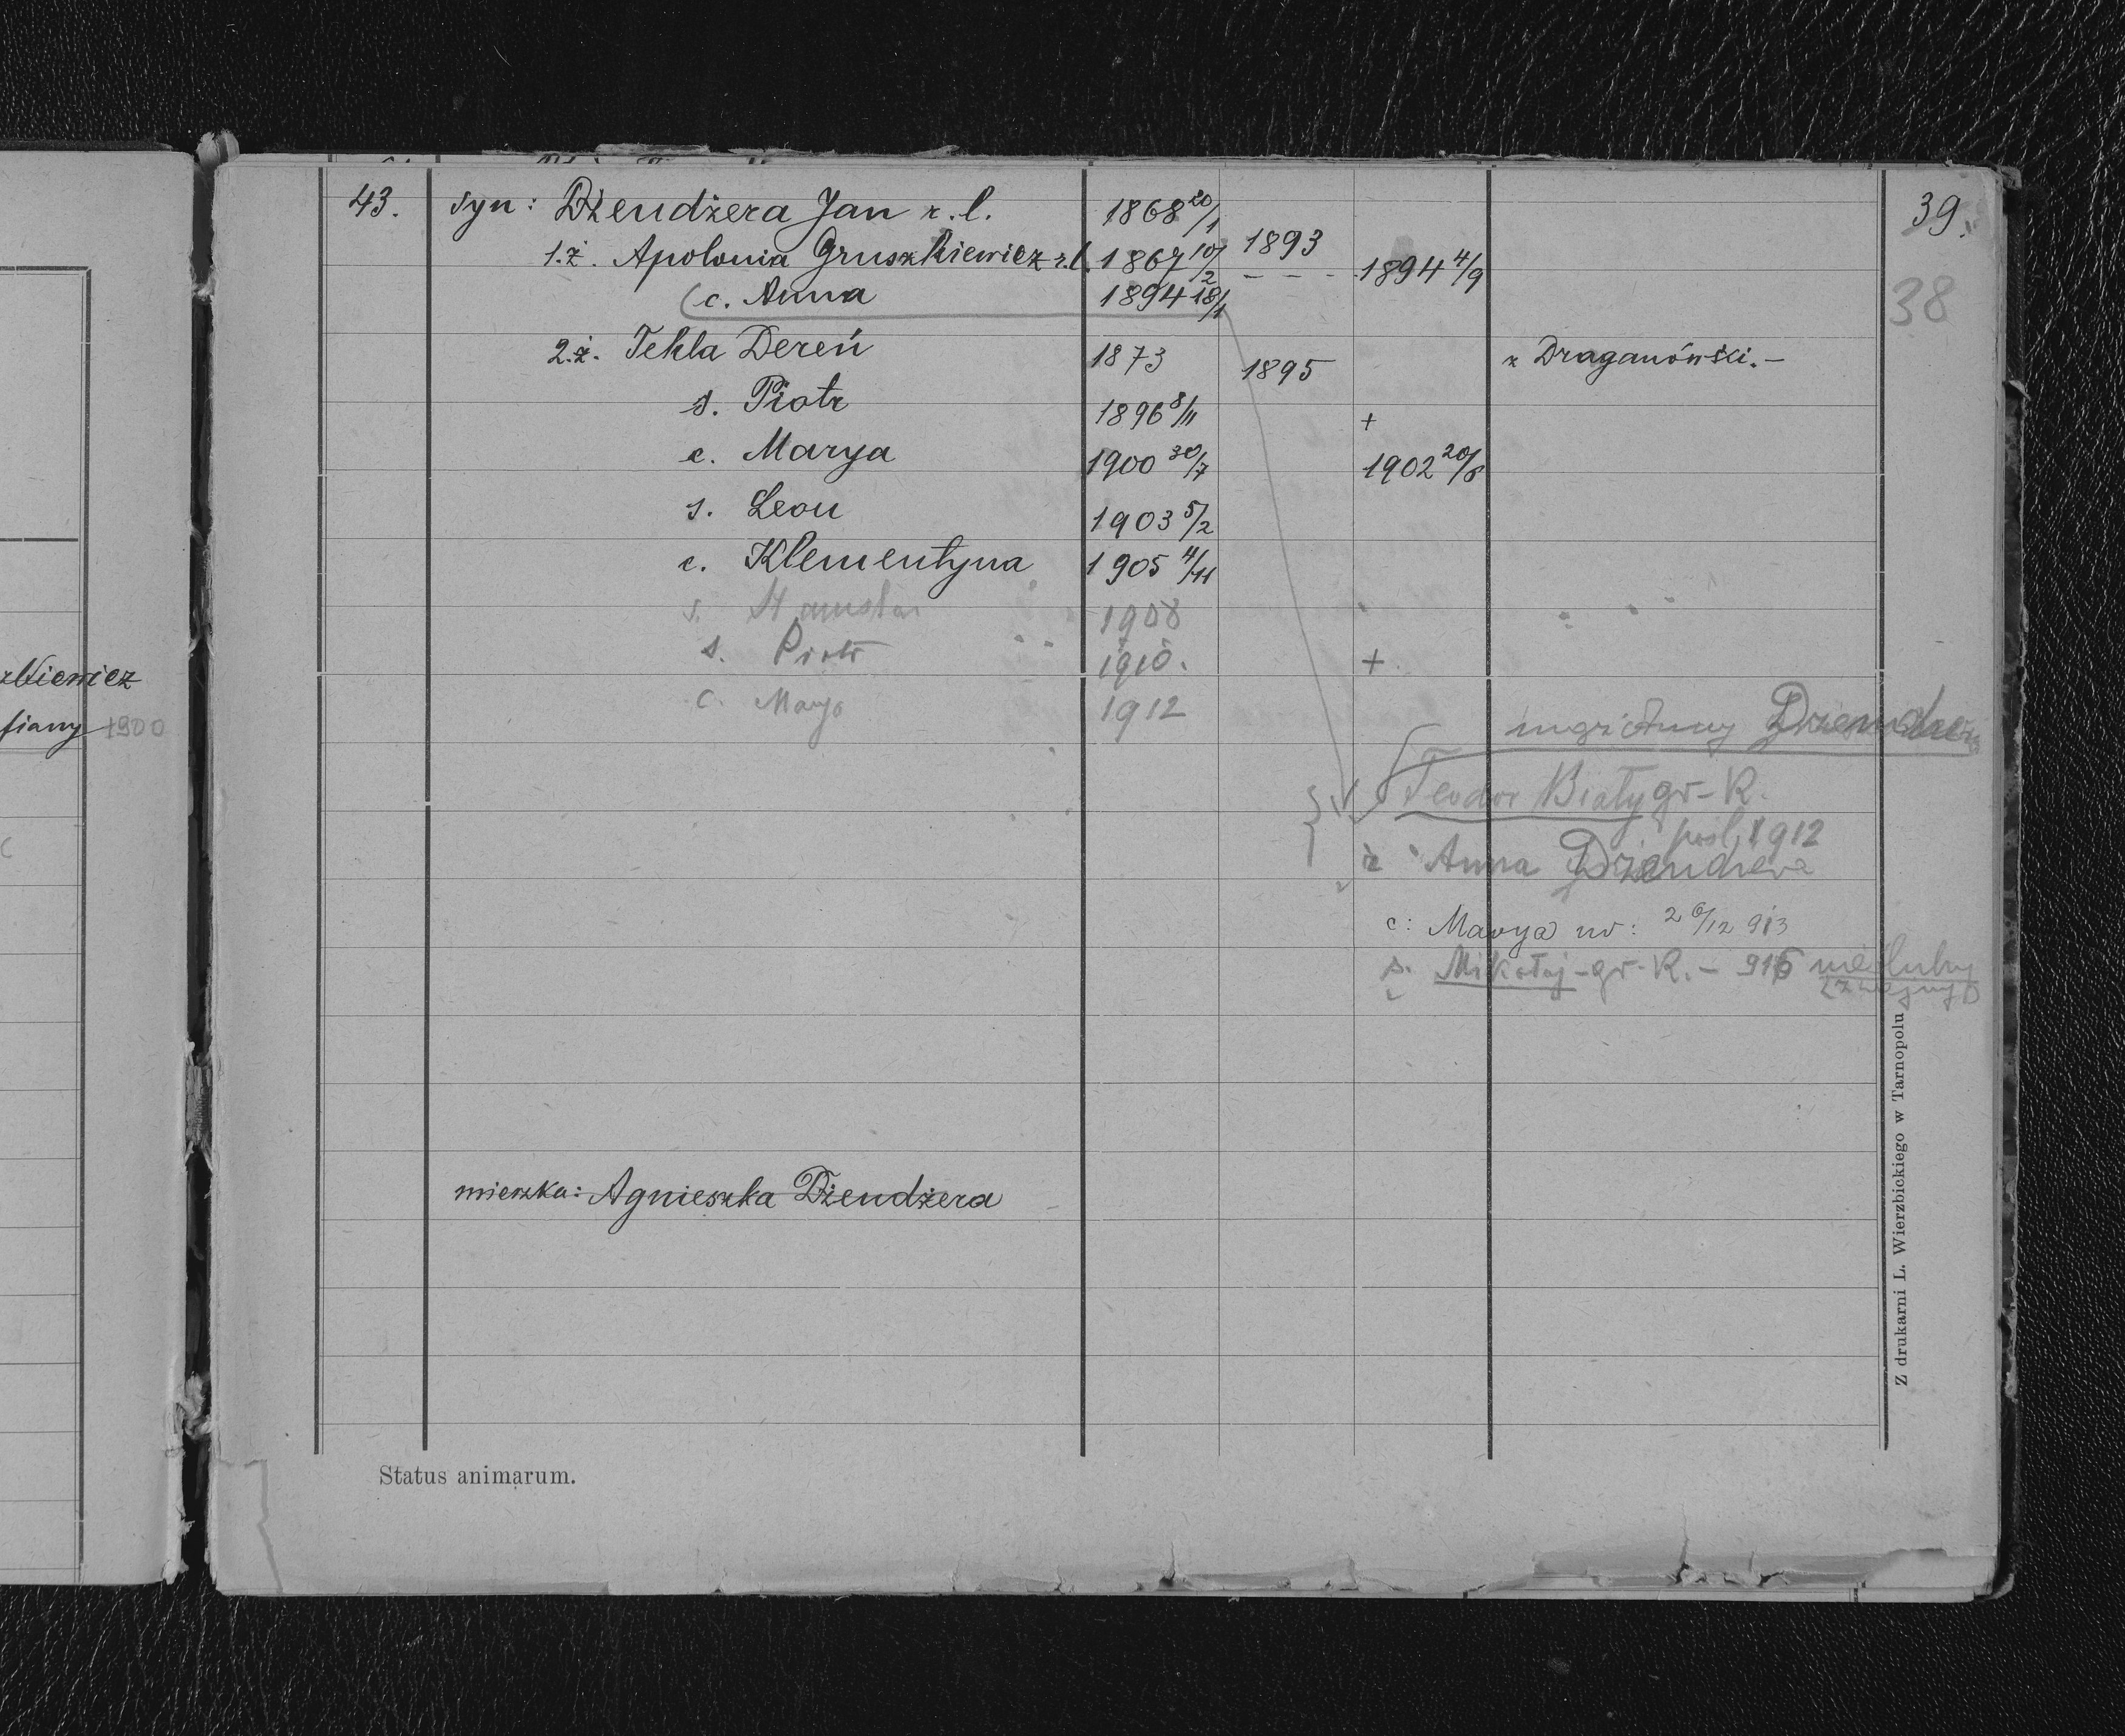 43. syn: Dżendżera Jan r. l. 1868 20/1 39.
1. ż. Apolonia Gruszkiewicz r. l. 1867 10/2 1893 1894 4/9
c. Anna 1894 18/1
38
2. ż. Tekla Dereń 1873 1895 z Draganówki.-
s. Piotr 1896 8/11 +
c. Marya 1900 30/7 1902 20/8
s. Leon 1903 5/2
c. Klementyna 1905 4/11
s. Stanisław 1908
s. Piotr 1910. +
c. Marya 1912
kiewicz
1900
Teodor Biały gr-K.
posl. 1912
ż Anna Dżendżera
c: Marya ur: 26/12 913
s. Mikołaj - gr-K. - 916 nieślubny
mieszka: Agnieszka Dżendżera
Status animarum.
Z drukarni L. Wierzbickiego w Tarnopolu